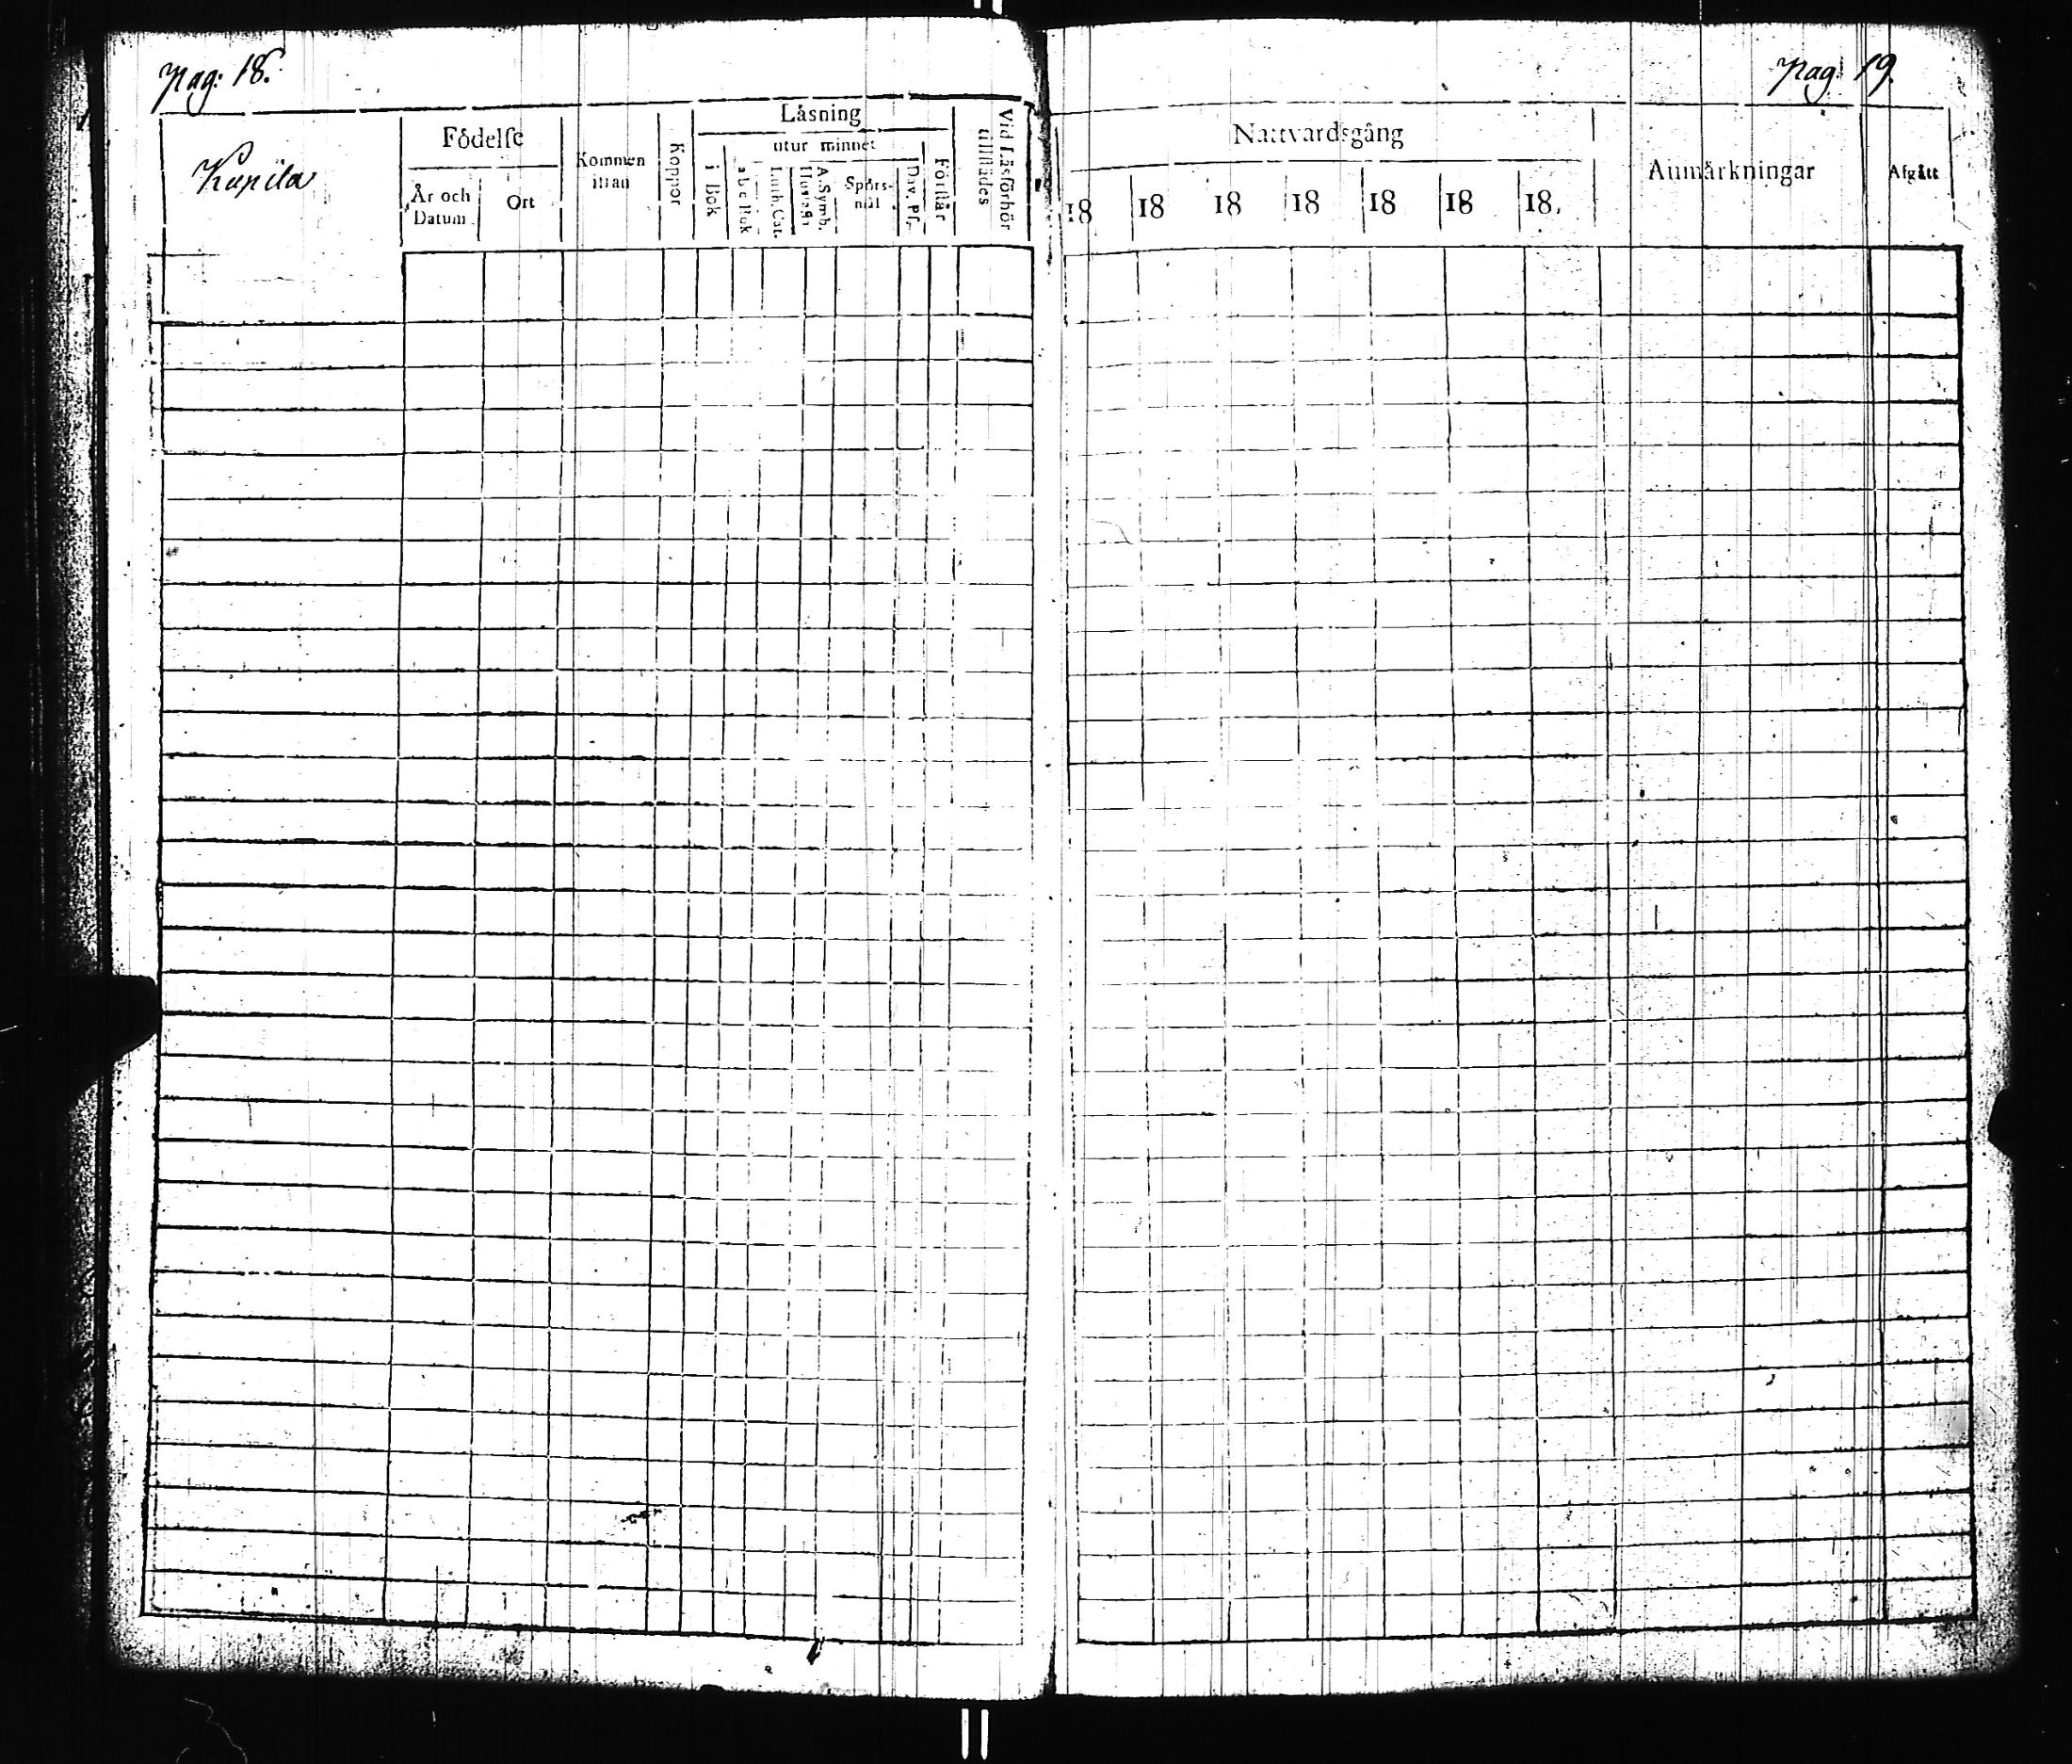 Pag: 18.
Pag. 19.
Kupila
Födelse
År och Datum
Ort
Kommen ifrån
Koppor
Läsning
i Bok
utur minnet
abc Bok
Luth. Cat.
Hustafla
A. Symb.
Spörsmål
Dav. Ps.
Förstår
Vid Läsförhör tillstädes
Nattvardsgång
18 18 18 18 18 18 18
Anmärkningar
Afgått